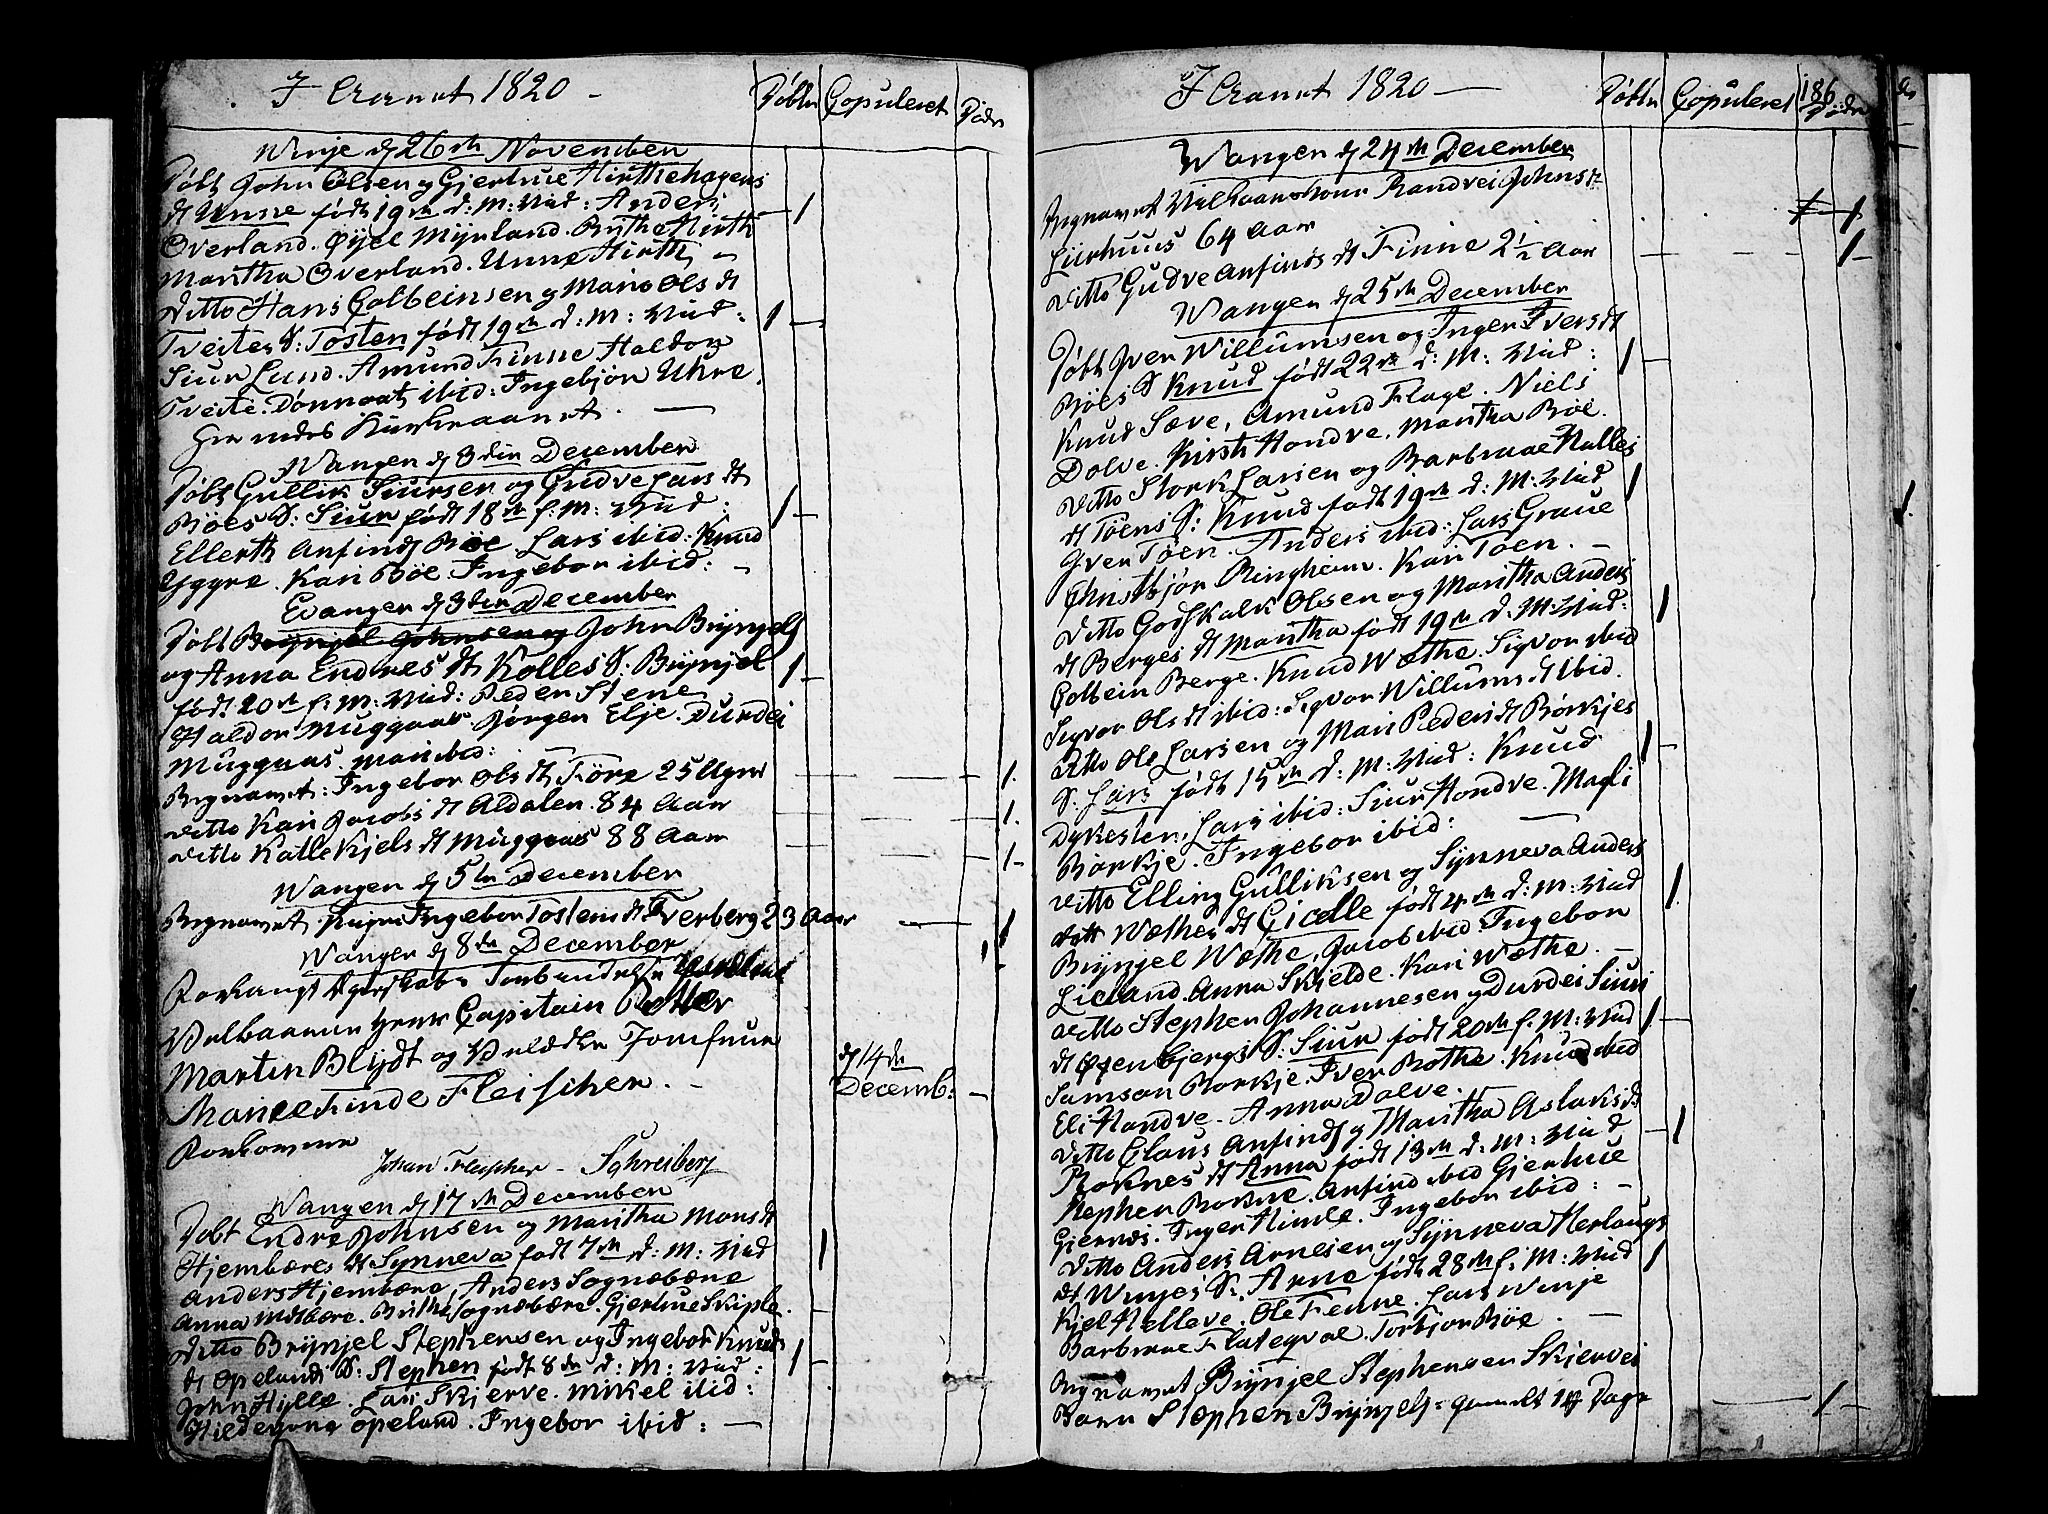 I Aaret 1820 -
Døbte Copuleret Døde
Winje d 26de November
Døbt John Olsen og Giertrue Hirthehagens
dt Unne født 19de d: M: Vid: Anders
Overland. Øyel Myrland. Brithe Hirth
Maritha Overland. Unne Hirth -
Ditto Hans Colbeinsen og Mario Ols dt
Tveites S: Tosten født 19de d: M: Vid:
Siur Lund. Amund Finne Haldor
Tveite. Dønnaat ibid: Ingebjør Uhre.
her endes Kirkeaaret. -
Wangen d 3die December
Døbt Gullik Siursen og Gudve Lars dt
Böes S: Siur født 18de f: M: Vid:
Ellerth Anfinds Böe Lars ibid: Knud
Yggre. Kari Böe Ingebor ibid: -
Evanger d 3die December
Døbt Brynjel Johnsen og John Brynjels
og Anna Endres dt Kolles S: Brynjel
født 20de f: M: Vid: Peder Stene
Haldor Muggaas Jørgen Elje. Durdei
Muggaas. Mari ibid:
Begravet: Ingebor Ols dt Före 25 Uger
ditto Kari Jacobs dt Aldalen 84 Aar
ditto Kalle Kjels dt Muggaas 88 Aar
Wangen d 5te December
Begravet Pigen Ingebor Tostens dt Tverberg 23 Aar
Wangen d 8de December
Forlangt Ægteskabs Forbindelse
Velbaarne Herr Capitain
Martin Blydt og Velædle Jomfrue
Marie Finde Fleischer. -
d 14de
Decemb:
Forlovere
Johan Fleischer - Schreiberg
Wangen d 17de December
Døbt Endre Johnsen og Maritha Mons dt
Hjembæres dt Synneva født 7de d: M: Vid
Anders Hjembære, Anders Sognebære
Anna Midbære. Brithe Sognebære. Giertrue Skiple.
Ditto Brynjel Stephensen og Ingebor Knuds
dt Opelands S: Stephen født 8de d: M: Vid:
John Hylle. Lars Skjerve. Mikel ibid:
Hildegong Opeland. Ingebor ibid: -
I Aaret 1820 -
Døbte Copuleret 186 Døde
Wangen d 24de December
Begravet Randvei Johns dt
Liirhuus 64 Aar
ditto Gudve Anfinds dt Finne 2 1/2 Aar
Wangen d 25de December
Døbt Iver Willumsen og Inger Ivers dt
Böes S Knud født 22de d: M: Vid:
Knud Sæve, Amund Flage. Niels
Dolve. Kirsti Hondve. Maritha Böe.
Ditto Stork Larsen og Barbraae Halles
dt Töens S: Knud født 19de d: M: Vid
Iver Töen. Anders ibid: Lars Graue
Christbjør Ringheim. Kari Töen. -
Ditto Godskalk Olsen og Maritha Anders
dt Berges dt Maritha født 19de d: M: Vid:
Colbein Berge. Knud Wæthe. Sigvor ibid
Sigvor Ols dt ibid: Sigvor Willums dt ibid.
ditto Ole Larsen og Mari Peders dt Börkjes
S. Lars født 15de d: M: Vid: Knud
Dykesten. Lars ibid: Siur Hondve. Magli
Börkje. Ingebor ibid: -
ditto Elling Gulliksen og Synneva Anders
datt Wæthes dt Gicelle født 4de d: M: Vid
Brynjel Wæthe, Jacob ibid Ingebor
Lieland. Anna Skjelde. Kari Wæthe. -
ditto Stephen Johannesen og Durdei Siurs
dt Øyenbjergs S: Siur født 20de f: M: Vid
Samson Borkje. Iver Rothe. Knud ibid
Eli Hondve. Anna Dolve.
ditto Claus Anfinds og Maritha Aslaks dt
Roknes dt Anna født 13de d: M: Vid
Stephen Rokne. Anfind ibid Giertrue
Giernes. Inger Himle. Ingebor ibid: -
Ditto Anders Arnesen og Synneva Herlaugs
dt Winjes S. Arne født 28de f: M: Vid
Kjel Helleve. Ole Fenne. Lars Winje
Barbraae Flateqval. Torbjør Böe. -
Begravet Brynjel Stephensen Skjervei
Barn Stephen Brynjels: gamelt 14 Dage